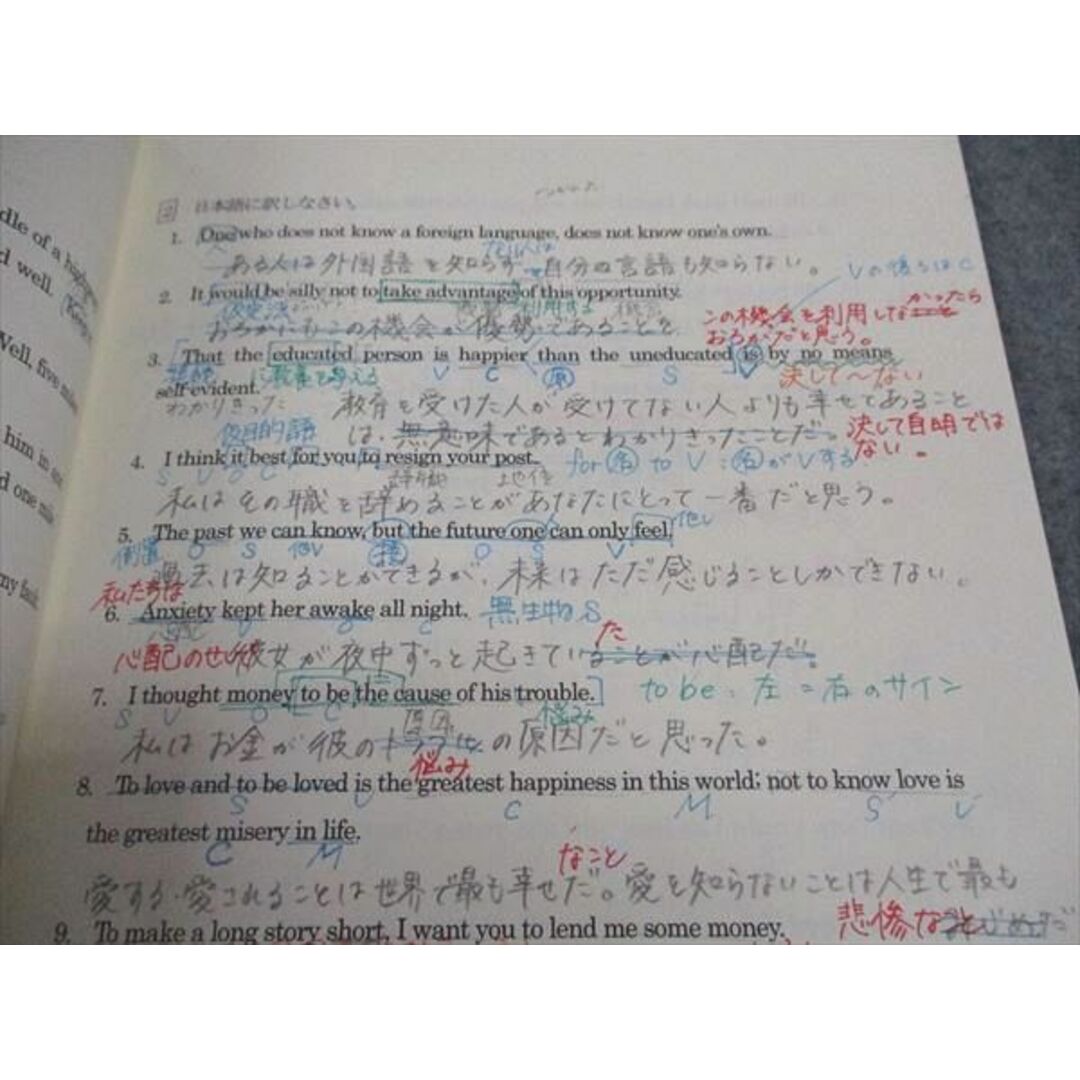 dle of a
d well.
Well, five
him in
d one
my fault
日本語に訳しなさい。
1. One who does not know a foreign language, does not know one's own.
ある人は外国語を知らず 自分の言語も知らない。
Vの後ろはC
2. It would be silly not to take advantage of this opportunity.
仮定法 利用する 機会
おろかにもこの機会が優勢であることを
この機会を利用しなかったら
おろかだと思う。
3. That the educated person is happier than the uneducated is by no means
に教養を与える V C S V 決して~ない
self-evident.
わかりきった 教育を受けた人が受けてない人よりも幸せであること
は、無意味であるとわかりきったことだ。 決して自明では
ない。
仮目的語
4. I think it best for you to resign your post. for 名 to V : 名がVする
S V O C 辞職 地位
私はその職を辞めることがあなたにとって一番だと思う。
5. The past we can know, but the future one can only feel. 他V
倒置 O S 他V 接 O S V
過去は知ることができるが、未来はただ感じることしかできない。
私たちは
6. Anxiety kept her awake all night. 無生物S
心配のせい 彼女が夜中ずっと起きていることが心配だ。
た
7. I thought money to be the cause of his trouble. to be : 左=右のサイン
S V O C 原因 悩み
私はお金が彼のトラブルの原因だと思った。
悩み
8. To love and to be loved is the greatest happiness in this world; not to know love is
S V C M S V
the greatest misery in life.
C M なこと
愛する・愛されることは世界で最も幸せだ。愛を知らないことは人生で最も
悲惨なこと
9. To make a long story short, I want you to lend me some money.